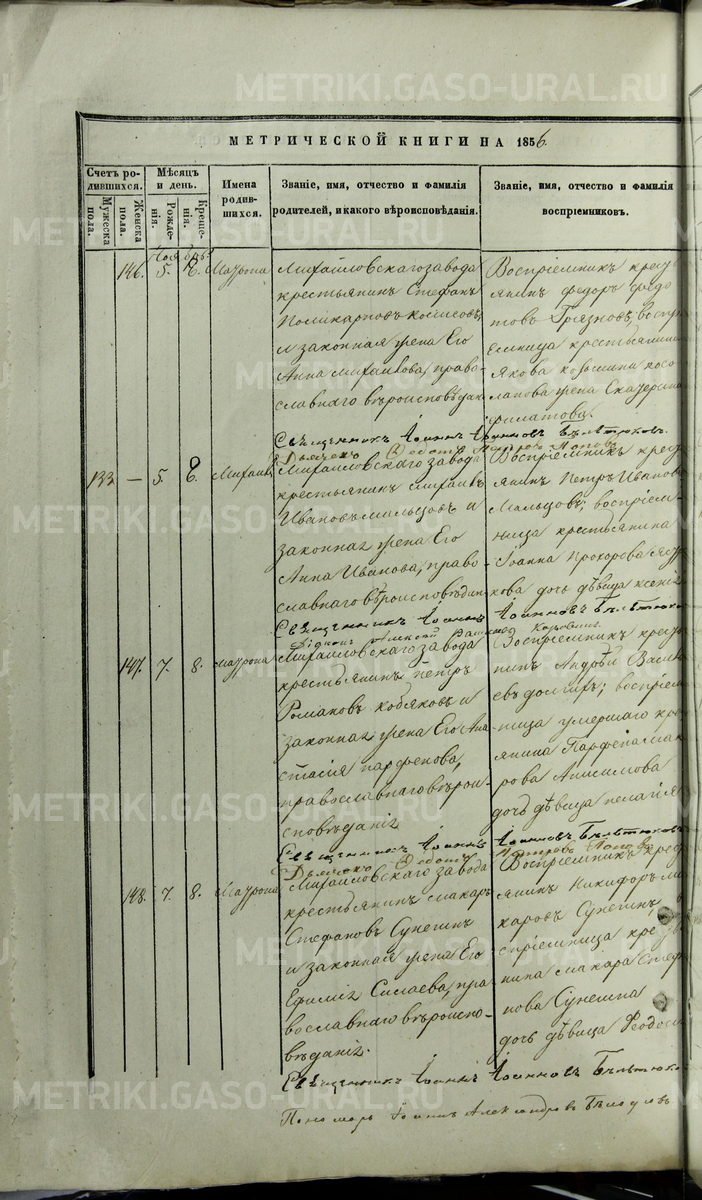 METRIKI.GASO-URAL.RU
МЕТРИЧЕСКОЙ КНИГИ НА 1856
Счетъ родившихся.
Мужеска пола.
Женска пола.
Мѣсяцъ и день.
Рожденія.
Крещенія.
Имена родившихся.
Званіе, имя, отчество и фамилія родителей, и какого вѣроисповѣданія.
Званіе, имя, отчество и фамилія воспріемниковъ.
Ноябрь
146. 5. 6. Мавропа
Михайловскаго завода
крестьянинъ Стефанъ
Поликарповъ
и законная жена Его
Анна Михайлова, право
славнаго вѣроисповѣдан
Воспріемникъ крест
янинъ Федоръ Федо
товъ Грязновъ, воспр
емница крестьянина
Якова
жена Екатерина
Филатова.
Священникъ Іоаннъ Іоанновъ Бѣлтюковъ.
Дьячекъ Федотъ Петровъ Поповъ
133 — 5. 6. Михаилъ
Михайловскаго завода
крестьянинъ Михаилъ
Ивановъ Мальцовъ и
законная жена Его
Анна Иванова, право
славнаго вѣроисповѣдан
Воспріемникъ крест
янинъ Петръ Ивановъ
Мальцовъ; воспріем
ница крестьянина
Іоанна Прохорова
кова дочь дѣвица Ксенія
Священникъ Іоаннъ Іоанновъ Бѣлтюко
Діаконъ Алексей
147. 7. 8. Мавропа
Михайловскаго завода
крестьянинъ Петръ
Романовъ Кобяковъ и
законная жена Его Ана
стасія Парфенова,
православнаго вѣроис
сповѣданія
Воспріемникъ крест
нинъ Андрей Василь
евъ Долгихъ; воспріем
ница умершаго кре
янина Парфена Мак
рова Анисимова
дочь дѣвица Пелагія
Священникъ Іоаннъ Іоанновъ Бѣлтюковъ
Дьячекъ Федотъ Петровъ Поповъ
148. 7. 8. Мавропа
Михайловскаго завода
крестьянинъ Макаръ
Стефановъ Сунегинъ
и законная жена Его
Ефимія Силаева, пра
вославнаго вѣроиспо
вѣданія.
Воспріемникъ крест
янинъ Никифоръ Ма
каровъ Сунегинъ,
спріемница крест
нина Макара Стеф
нова Сунегина
дочь дѣвица Феодос
Священникъ Іоаннъ Іоанновъ Бѣлтюко
Пономарь Іоаннъ Александровъ Бѣлоусовъ